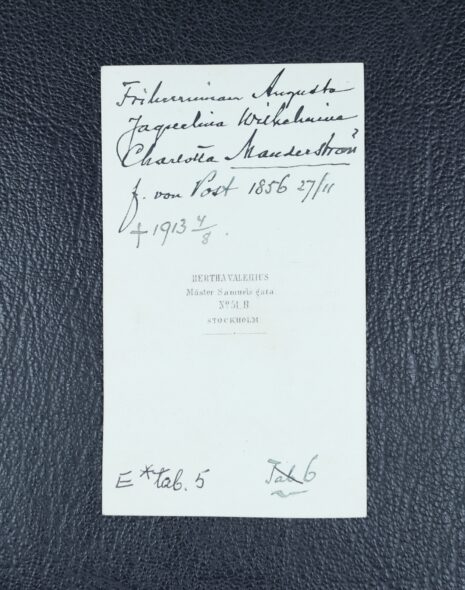 Friherrinnan Augusta
Jaquelina Wilhelmina
Charlotta Manderström
f. von Post 1856 27/11
† 1913 4/8.
BERTHA VALERIUS
Mäster Samuels gata
No 51. B
STOCKHOLM
E * tab. 5 Tab 6